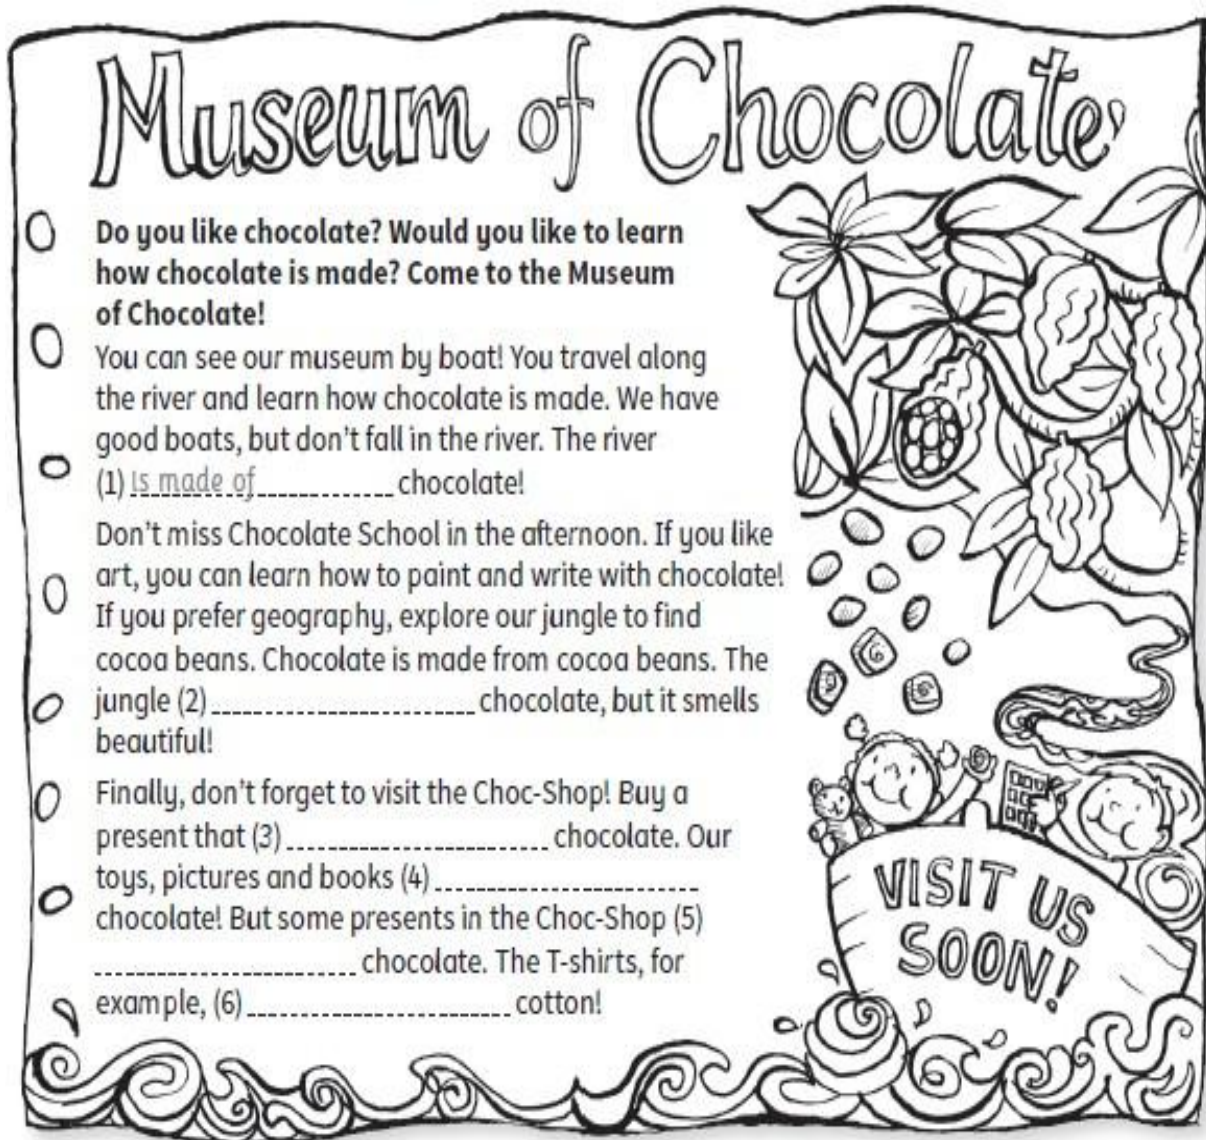 Museum of Chocolate
Do you like chocolate? Would you like to learn
how chocolate is made? Come to the Museum
of Chocolate!
You can see our museum by boat! You travel along
the river and learn how chocolate is made. We have
good boats, but don't fall in the river. The river
(1) is made of chocolate!
Don't miss Chocolate School in the afternoon. If you like
art, you can learn how to paint and write with chocolate!
If you prefer geography, explore our jungle to find
cocoa beans. Chocolate is made from cocoa beans. The
jungle (2) chocolate, but it smells
beautiful!
Finally, don't forget to visit the Choc-Shop! Buy a
present that (3) chocolate. Our
toys, pictures and books (4)
chocolate! But some presents in the Choc-Shop (5)
chocolate. The T-shirts, for
example, (6) cotton!
VISIT US
SOON!